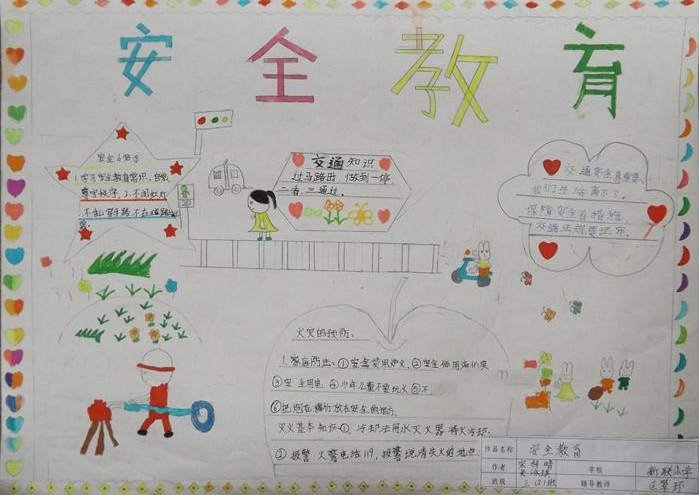 安全教育
安全小常识
1.学习安全教育常识，自觉
遵守秩序，2.不闯红灯
不乱穿马路不在道路
交通知识
过马路出，做到一停
二看，三通过。
交通安全真重要，
我们生活离不了。
保障安全有措施，
交通法规要记牢。
火灾的预防、
1.家庭防火：①安全使用炉火，②安全使用液化
③安全用电，④少年儿童不要玩火⑤不
⑥把烟花爆竹放在安全的地方
灭火基本知识①冷却法用水灭火器将火冷却
②报警 火警电话119，报警说清失火的地点
作品名称 安全教育
作者 学校 新联小学
班级 三（2）班 辅导教师